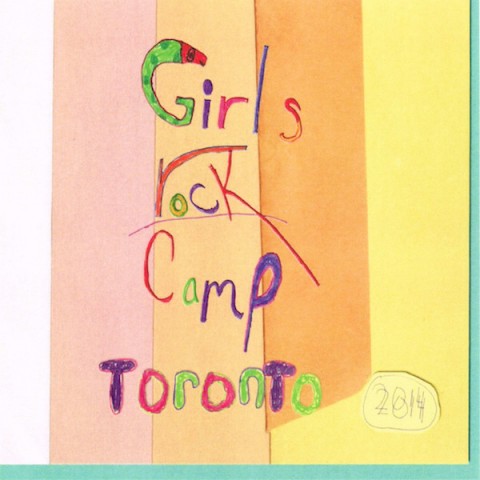 Girls
rock
Camp
ToronTo
2014